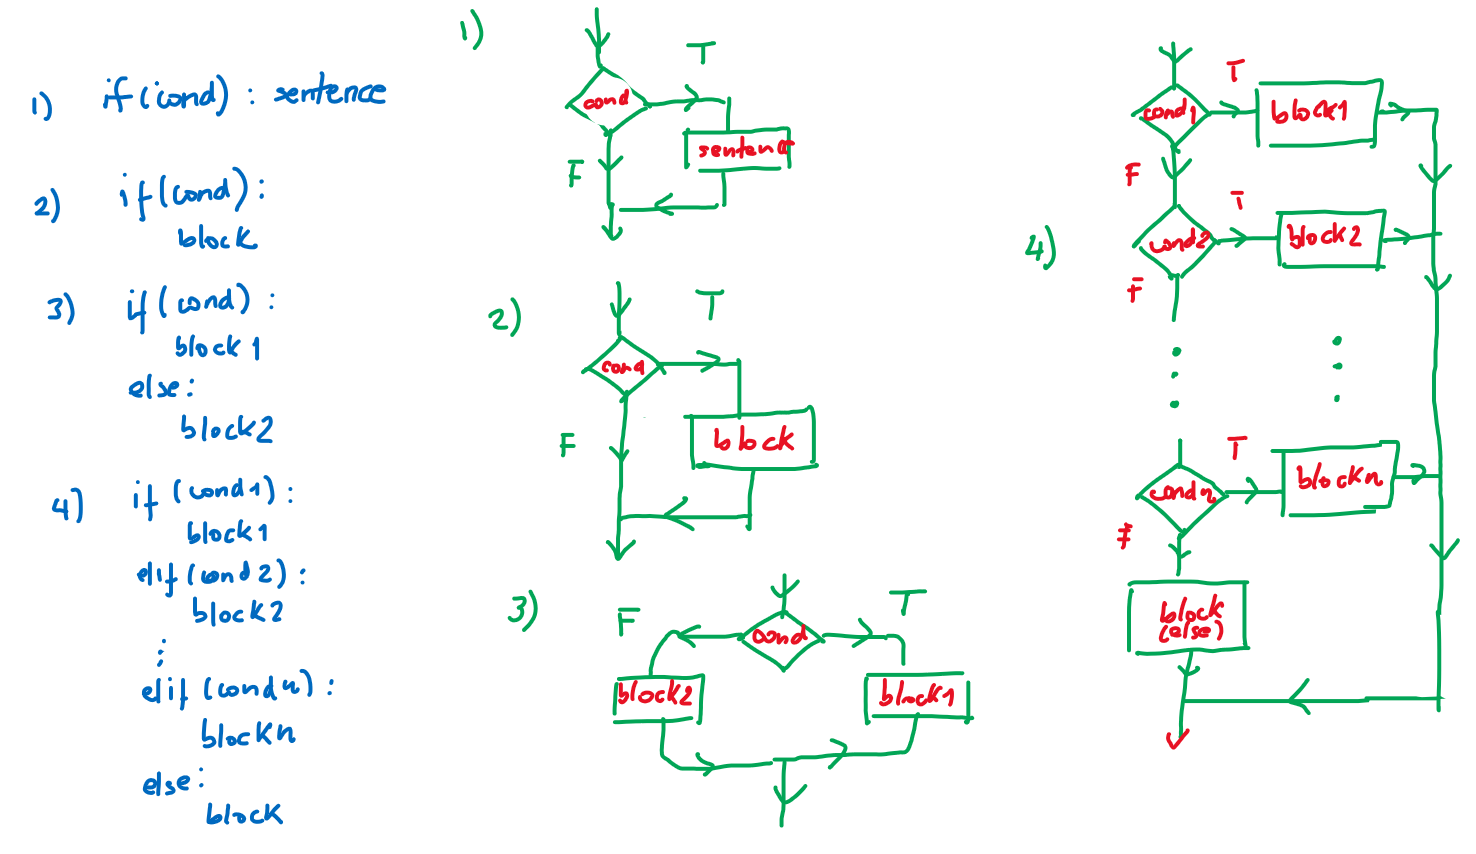 1) if (cond) : sentence
2) if (cond) :
block
3) if (cond) :
block 1
else:
block2
4) if (cond1) :
block1
elif (cond2) :
block2
⋮
elif (condn) :
blockn
else:
block
1)
T
cond
sentence
F
2)
T
cond
block
F
3)
F
T
cond
block2
block1
4)
T
cond1
block1
F
T
cond2
block2
F
T
condn
blockn
F
block
(else)